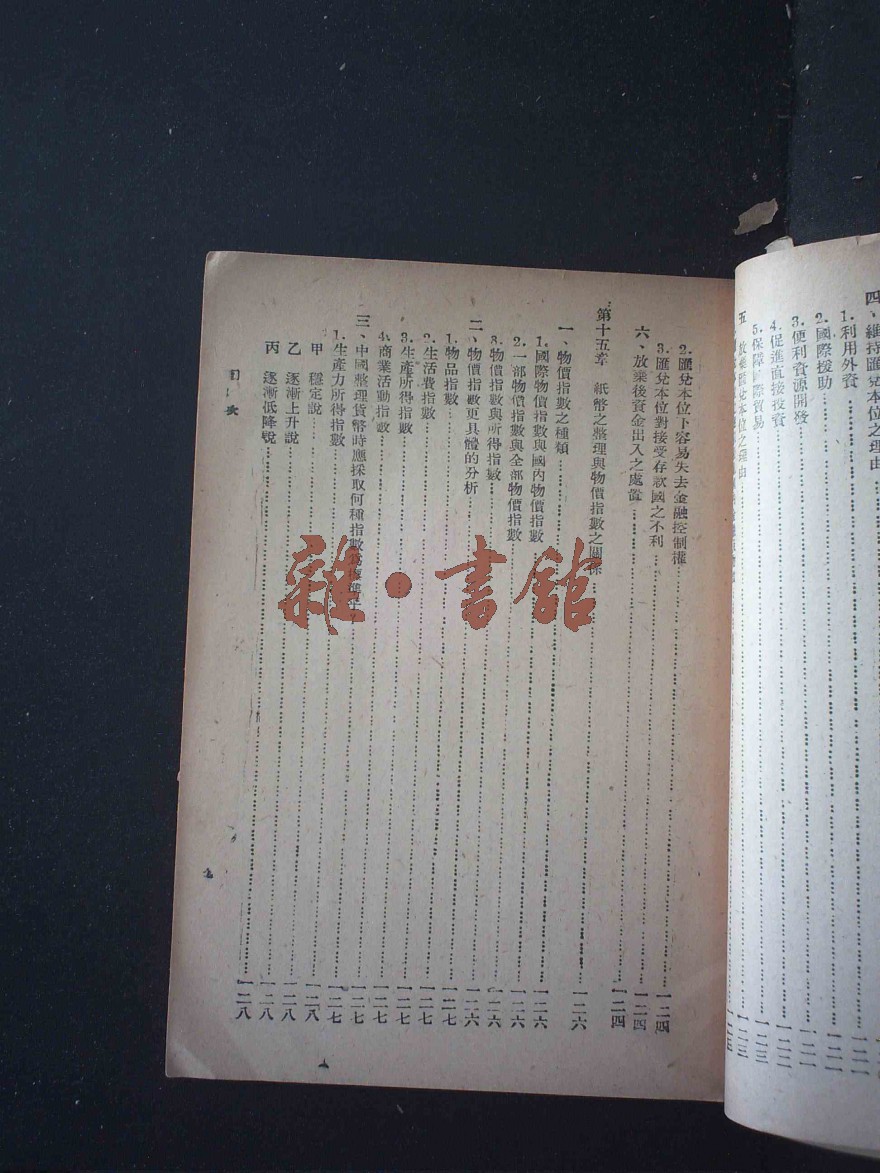 四、維持匯兌本位之理由
1.利用外資
2.國際援助
3.便利資源開發
4.促進直接投資
5.保障國際貿易
五、放棄匯兌本位之理由
2.匯兌本位下容易失去金融控制權……一二四
3.匯兌本位對接受存款國之不利……一二四
六、放棄後資金出入之處置……一二四
第十五章　紙幣之整理與物價指數之關係……一二六
一、物價指數之種類……一二六
1.國際物價指數與國內物價指數……一二六
2.一部物價指數與全部物價指數……一二六
3.物價指數與所得指數……一二六
二、物價指數更具體的分析……一二七
1.物品指數……一二七
2.生活費指數……一二七
3.生產所得指數……一二七
4.商業活動指數……一二七
三、中國整理貨幣時應採取何種指數為標準……一二七
1.生產力所得指數……一二八
甲　穩定說……一二八
乙　逐漸上升說……一二八
丙　逐漸低降說……一二八
雜·書館